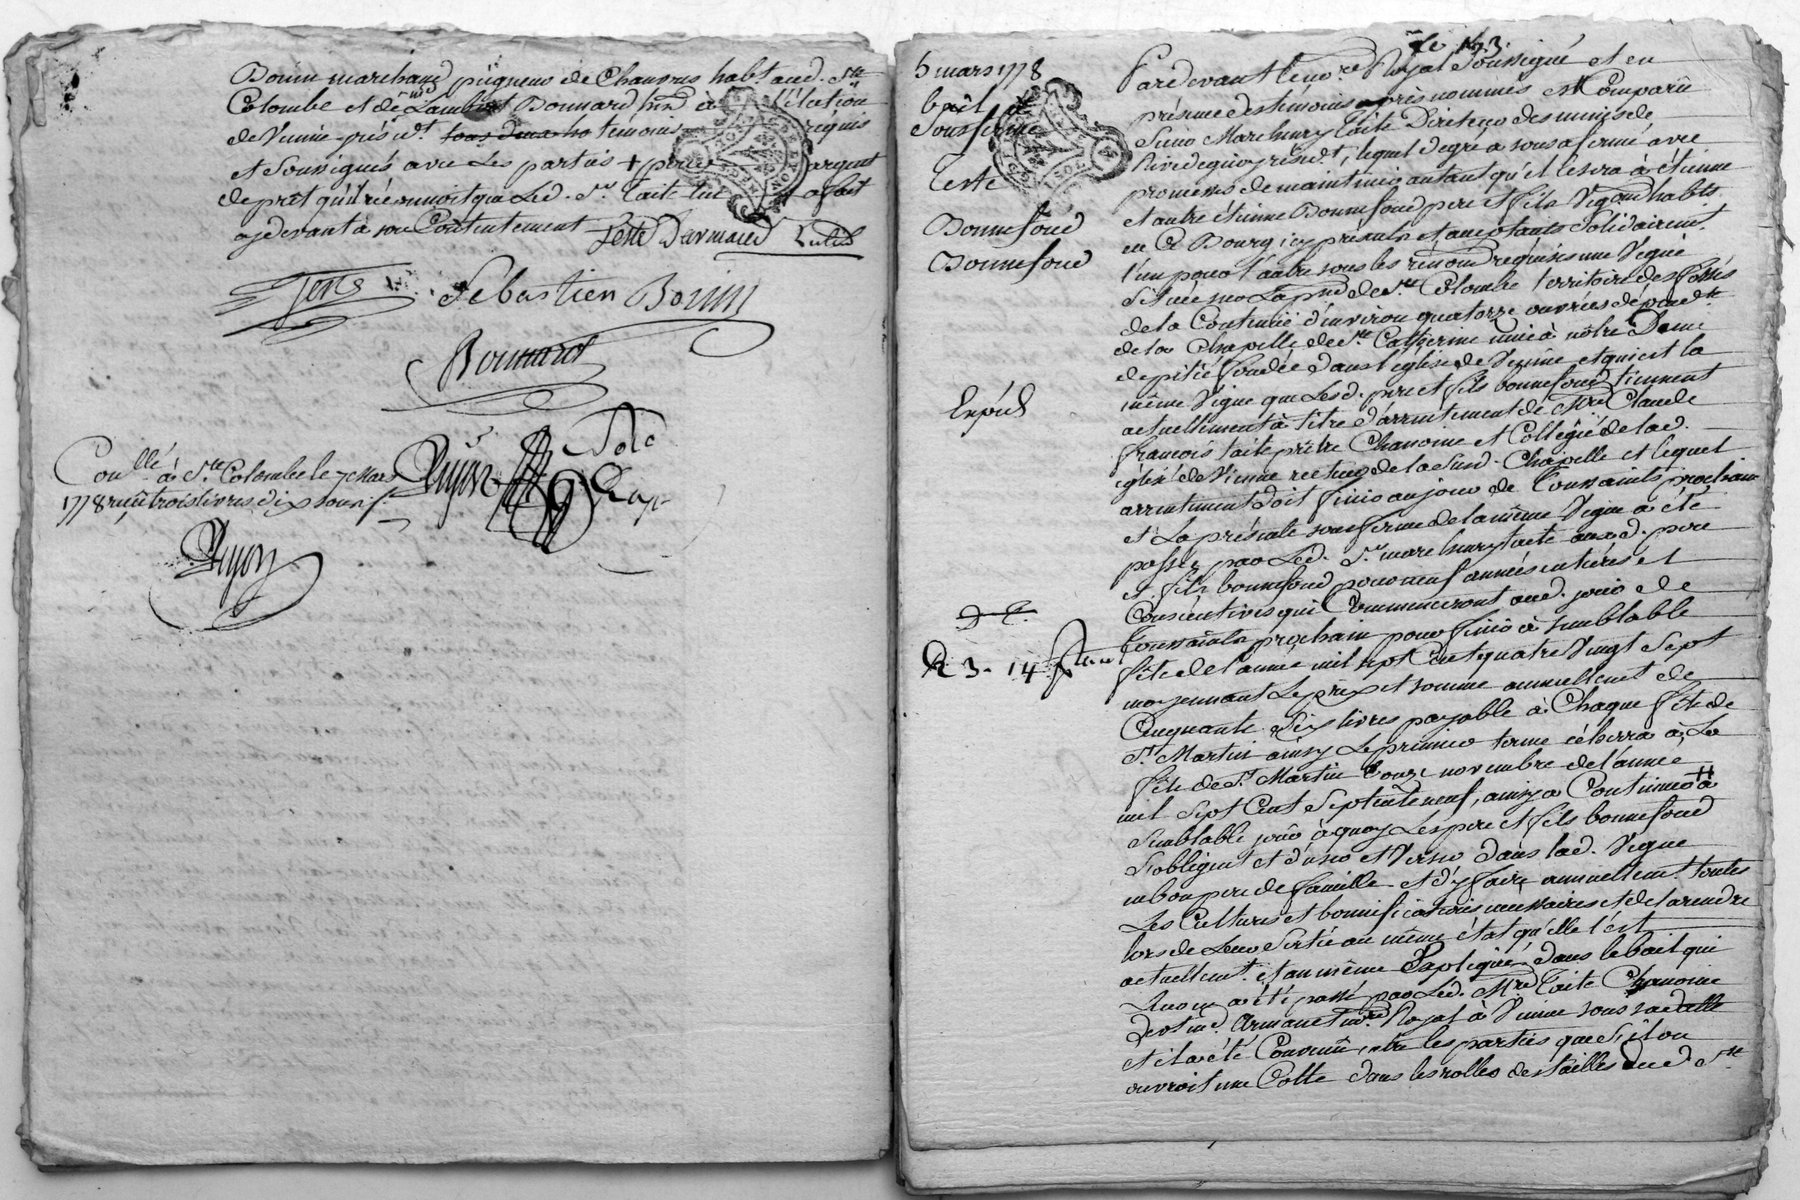 Bonin marchand pigneur de Chanvres habt aud. Ste
Colombe et de Sr Lambert Bonnard hnd à
de Vienne present tous deux temoins requis
et Soussignés avec Les parties + argent
de pret qu'il réconnoit que Led. Sr. taite lui a fait
cydevant à son Contentement
Sébastien Bonin
Bonnard
Conllé à Ste Colombe le 7 Mars
1778 reçu trois livres dix sous
Guyon
Guyon
5 mars 1778
bail
Sousferme
teste
Bonnefond
Bonnefond
Expéd
R 3 - 14
Pardevant le nore Royal Soussigné et en
présence des témoins après nommés est Comparû
Sieur Marc henry taite Directeur des mines de
Rivedegier y résidt, lequel de gré a sous afermé avec
promesse de maintenir autant qu'il le sera à étienne
et autre étienne Bonnefond pere et fils Vigns habts
en Ce Bourg icy présents et acceptants Solidairement
l'un pour l'autre sous les rénond requises une Vigne
Située sur La psse de Ste. Colombe territoire des fossés
de la Contenüe d'environ quatorze ouvrées dépende
de la Chapelle de Ste Catherine unie à nôtre Dame
de pitié fondée dans l'église de Vienne et qui est la
même Vigne que Lesd. pere et fils bonnefond tiennent
actuellement à titre d'arrentement de Mre Claude
françois taite prêtre Chanoine et Collégié de lad.
église de Vienne recteur de la Susd. Chapelle et lequel
arrentement doit finir au jour de Toussaints prochain
et La présente sousferme de la même Vigne a été
passée par Led. Sr marc henry taite auxd. pere
et fils bonnefond pour neuf années entieres et
Consécutives qui Commenceront aud. jour de
toussaints prochain pour finir à semblable
fête de l'année mil sept Cent quatre Vingt Sept
moyennant Le prix et somme annuellement de
Cinquante Six livres payable à Chaque fête de
St. Martin ainsy Le premier terme écherra à La
fête de St Martin onze novembre de l'année
mil Sept Cent Septenteneuf, ainsy a Continuer à
Semblable jour à quoy Les pere et fils bonnefond
S'obligent et d'user et Verser dans lad. Vigne
en bon pere de famille et d'y faire annuellement toutes
Les Cultures et bonnifications nécessaires et de la rendre
lors de Leur Sortie au même état qu'elle l'est
actuellemt. et au même Expliqué dans le bail qui
Leur a été passé par Led. Mre taite Chanoine
Armanet nore Royal à Vienne sous sa datte
et il a été Convenû entre les parties que S'il on
ouvroit une Cotte dans les rolles des tailles dud. Ste